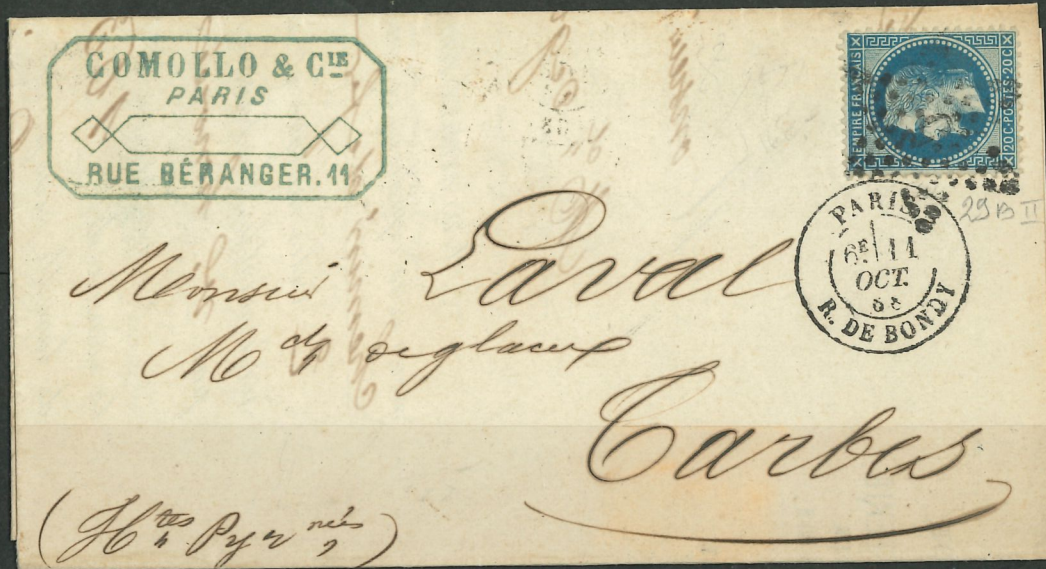 COMOLLO & CIE
PARIS
RUE BÉRANGER. 11
EMPIRE FRANÇAIS
20 C-POSTES-20 C
29 B II
PARIS
6E 11
OCT.
68
R. DE BONDY
Monsieur Laval
Md de glaces
Tarbes
(Htes Pyrnées)